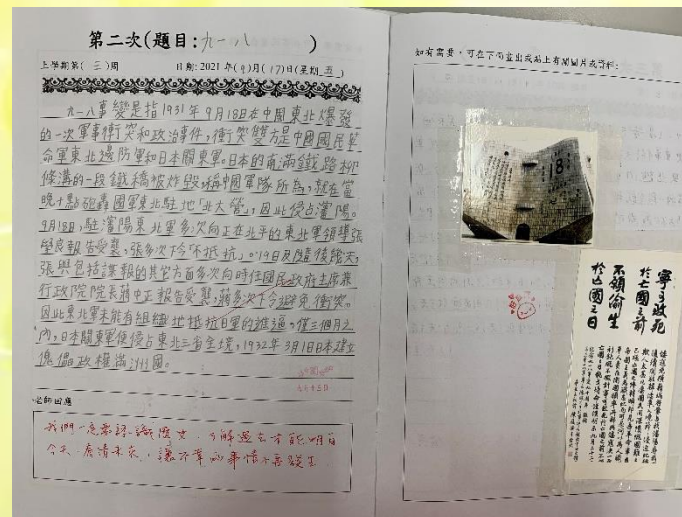 第二次(題目:九一八)
上學期第(三)周 日期:2021年(9)月(17)日(星期 五)
九一八事變是指1931年9月18日在中國東北爆發
的一次軍事衝突和政治事件,衝突雙方是中國國民革
命軍東北邊防軍和日本關東軍。日本的南滿鐵路柳
條溝的一段鐵橋被炸毀稱中國軍隊所為,就在當
晚十點砲轟國軍東北駐地「北大營」,因此侵占瀋陽。
9月18日,駐瀋陽東北軍多次向正在北平的東北軍領導張
學良報告受襲,張多次下令「不抵抗」。19日及隨後諸天,
張與包括諜報的其它方面多次向時任國民政府主席兼
行政院院長蔣中正報告受襲,蔣多次下令避免衝突。
因此東北軍未能有組織地抵抗日軍的進逼。僅三個月之
內,日本關東軍侵占東北三省全境,1932年3月1日日本建立
傀儡政權滿洲國。
老師回應
我們一定要認識歷史,了解過去才能明白
今天,看清未來,讓不幸的事情不再發生
如有需要,可在下面畫出或貼上有關圖片或資料:
18
寧可戰死
於亡國之前
不願偷生
於亡國之日